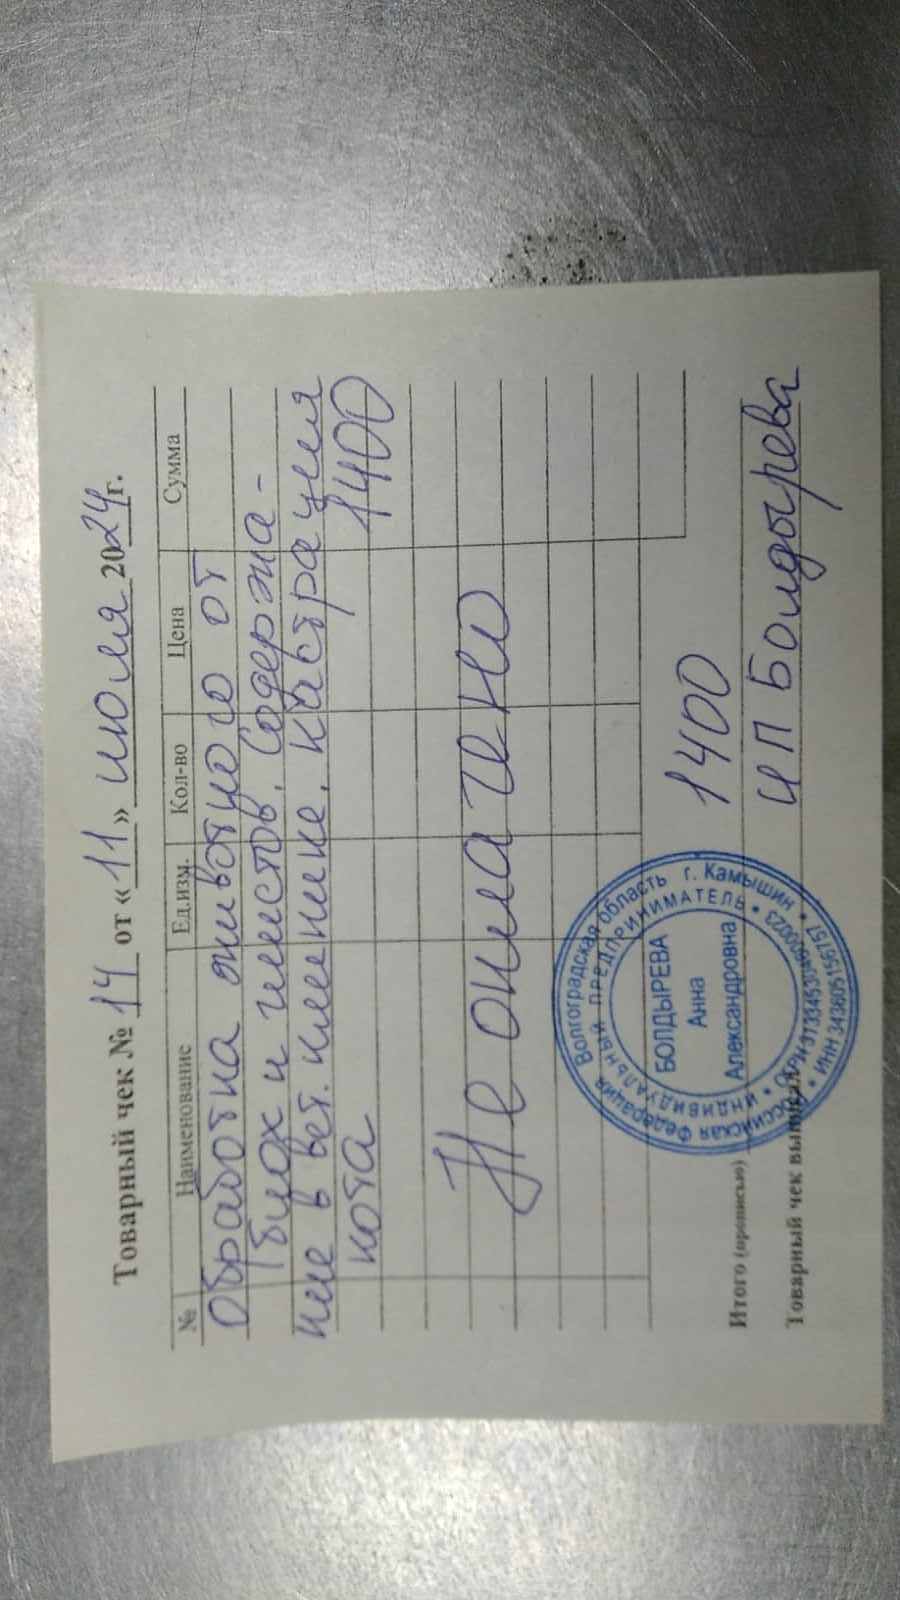 Товарный чек № 14 от «11» июля 2024г.
№ Наименование Ед.изм. Кол-во Цена Сумма
Обработка животного от
блох и глистов. Содержа-
ние в вет. клинике. кастрация
кота 1400
Не оплачено
Итого (прописью) 1400
Товарный чек выписал ИП Болдырева
Российская Федерация Волгоградская область г. Камышин
ИНДИВИДУАЛЬНЫЙ ПРЕДПРИНИМАТЕЛЬ
БОЛДЫРЕВА
Анна
Александровна
ИНН 343605156757